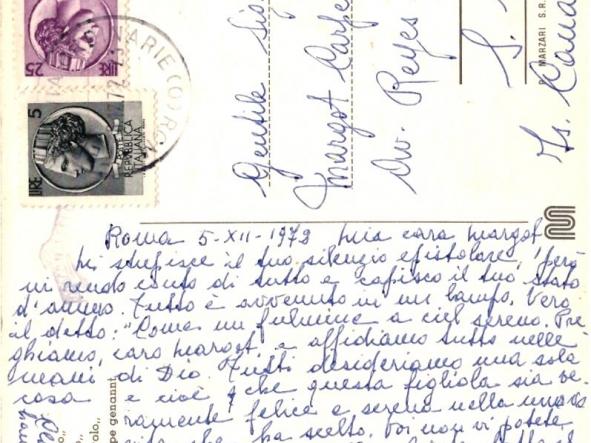 LIRE 25
LIRE 5
POSTE REPUBBLICA ITALIANA
Gentile Sig
Margot Carpe
Av. Reyes
S.
Is. Cana
MARZARI S.R.
Roma 5-XII-1972 Mia cara Margot
Mi stupisce il tuo silenzio epistolare, però
mi rendo conto di tutto e capisco il tuo stato
d'animo. Tutto è avvenuto in un lampo. Vero
il detto: "Come un fulmine a ciel sereno. Pre
ghiamo, cara Margot, e affidiamo tutto nelle
mani di Dio. Tutti desideriamo una sola
cosa e cioè che questa figliola sia ve
ramente felice e serena nella
che ha scelto. Voi non vi potete,
pe genanni
olo,,